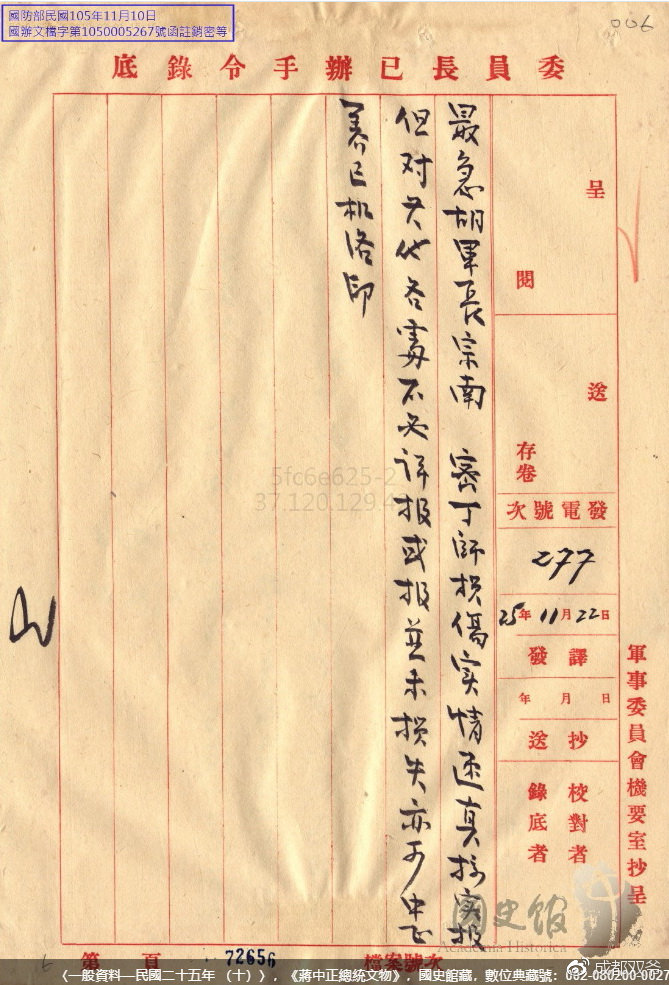 國防部民國105年11月10日
國辦文檔字第1050005267號函註銷密等
006
委員長已辦手令錄底
呈閱
送存卷
發電號次
277
25年11月22日
譯發
年 月 日
抄送
校對者
錄底者
軍事委員會機要室抄呈
最急胡軍長宗南 密丁師损傷实情真实报
但对其他各處不必详报或报並未损失亦可中正
养巳机洛印
5fc6e625-2
37.120.129.4
國史館
Academia Historica
第 頁
72656
檔案號次
〈一般資料—民國二十五年 （十）〉，《蔣中正總統文物》，國史館藏，數位典藏號：002-080200-0027
成都双爷